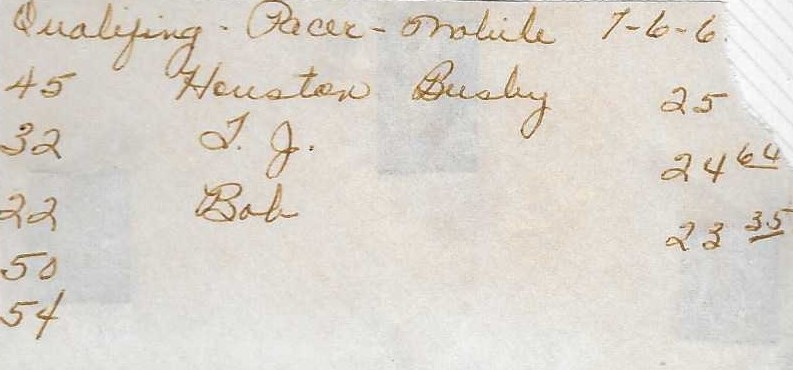 Qualifing - Racer - Mobile 7-6-6
45 Houston Busby 25
32 T. J. 24 64
22 Bob 23 35
50
54